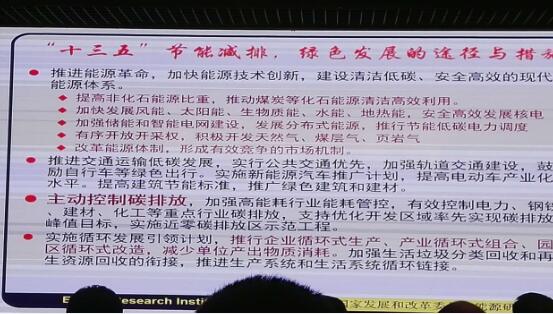 “十三五”节能减排，绿色发展的途径与措施
推进能源革命，加快能源技术创新，建设清洁低碳、安全高效的现代
能源体系。
提高非化石能源比重，推动煤炭等化石能源清洁高效利用。
加快发展风能、太阳能、生物质能、水能、地热能，安全高效发展核电
加强储能和智能电网建设，发展分布式能源，推行节能低碳电力调度
有序开放开采权，积极开发天然气、煤层气、页岩气
改革能源体制，形成有效竞争的市场机制。
推进交通运输低碳发展，实行公共交通优先，加强轨道交通建设，鼓
励自行车等绿色出行。实施新能源汽车推广计划，提高电动车产业化
水平。提高建筑节能标准，推广绿色建筑和建材。
主动控制碳排放，加强高能耗行业能耗管控，有效控制电力、钢铁
、建材、化工等重点行业碳排放，支持优化开发区域率先实现碳排放
峰值目标，实施近零碳排放区示范工程。
实施循环发展引领计划，推行企业循环式生产、产业循环式组合、园
区循环式改造，减少单位产出物质消耗。加强生活垃圾分类回收和再
生资源回收的衔接，推进生产系统和生活系统循环链接。
Research Insti
国家发展和改革委 能源研